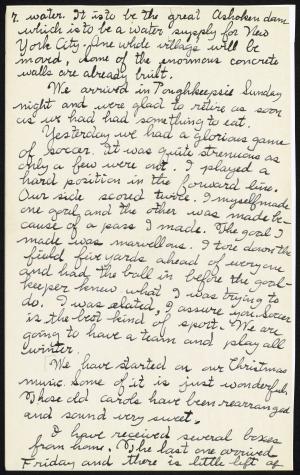 7. water. It is to be the great Ashoken dam
which is to be a water supply for New
York City. One whole village will be
moved, some of the enormous concrete
walls are already built.
We arrived in Poughkeepsie Sunday
night and were glad to retire as soon
as we had had something to eat.
Yesterday we had a glorious game
of soccer. It was quite strenuous as
only a few were out. I played a
hard position in the forward line.
Our side scored twice. I myself made
one goal and the other was made be-
cause of a pass I made. The goal I
made was marvellous. I tore down the
field five yards ahead of everyone
and had the ball in before the goal-
keeper knew what I was trying to
do. I was elated, I assure you. Soccer
is the best kind of sport. We are
going to have a team and play all
winter.
We have started on our Christmas
music. Some of it is just wonderful,
Those old carols have been rearranged
and sound very sweet.
I have received several boxes
from home. The last one arrived
Friday and there is little left of